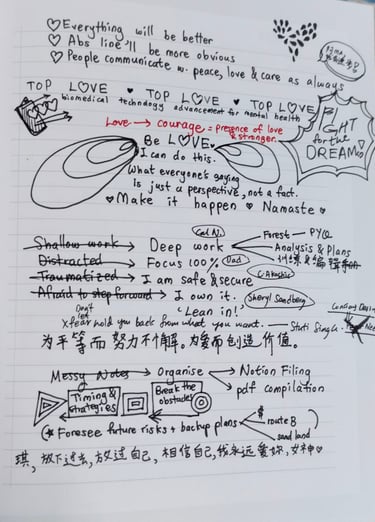 ♡ Everything will be better
♡ Abs line'll be more obvious
♡ People communicate w. peace, love & care as always
TOP LOVE ♥ TOP LOVE ♥ TOP LOVE
biomedical technology advancement for mental health
Love → courage = presence of love & stronger.
FIGHT for the DREAM!
Be LOVE.
I can do this.
What everyone's saying
is just a perspective, not a fact.
♥ Make it happen ♥ Namaste ♥
Cal N.
Shallow work → Deep work
Forest — PYQ
Analysis & Plans
Distracted → Focus 100%
Dad
Traumatized → I am safe & secure
C. Akashic
Afraid to step forward → I own it.
Sheryl Sandberg
'Lean in!'
Don't let
fear hold you back from what you want. — Stuti Singh
为平等而努力不懈。为爱而创造价值。
Messy Notes → Organise → Notion Filing
pdf compilation
Timing & strategies
Break the obstacles
(* Foresee future risks + backup plans
$
route B
sand land
琪, 放下过去, 放过自己, 相信自己, 我永远爱你, 女神♡